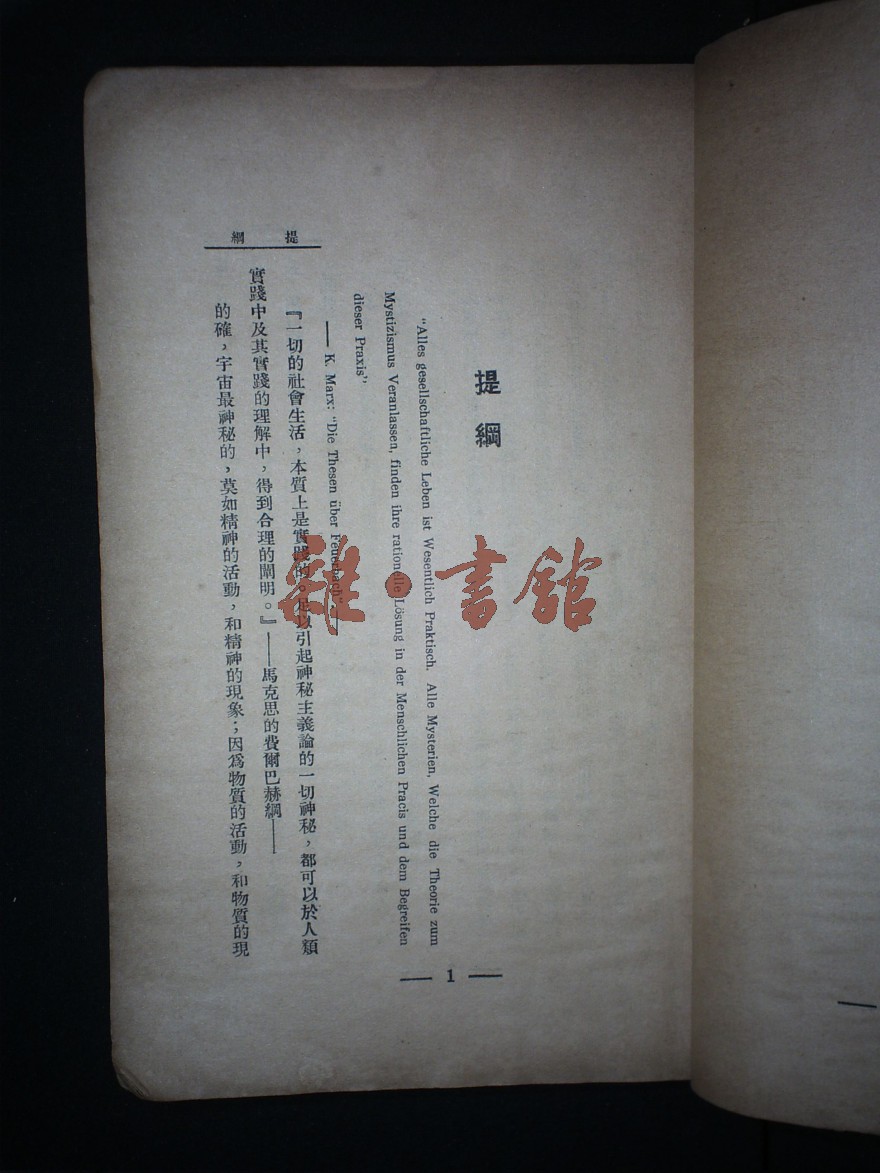 提綱
提綱
"Alles gesellschaftliche Leben ist Wesentlich Praktisch. Alle Mysterien, Welche die Theorie zum
Mystizismus Veranlassen, finden ihre rationelle Lösung in der Menschlichen Pracis und dem Begreifen
dieser Praxis"
—— K. Marx: "Die Thesen über Feuerbach" ——
『一切的社會生活，本質上是實踐的。足以引起神秘主義論的一切神秘，都可以於人類
實踐中及其實踐的理解中，得到合理的闡明。』——馬克思的費爾巴赫綱——
的確，宇宙最神秘的，莫如精神的活動，和精神的現象；因爲物質的活動，和物質的現
— 1 —
雜·書館